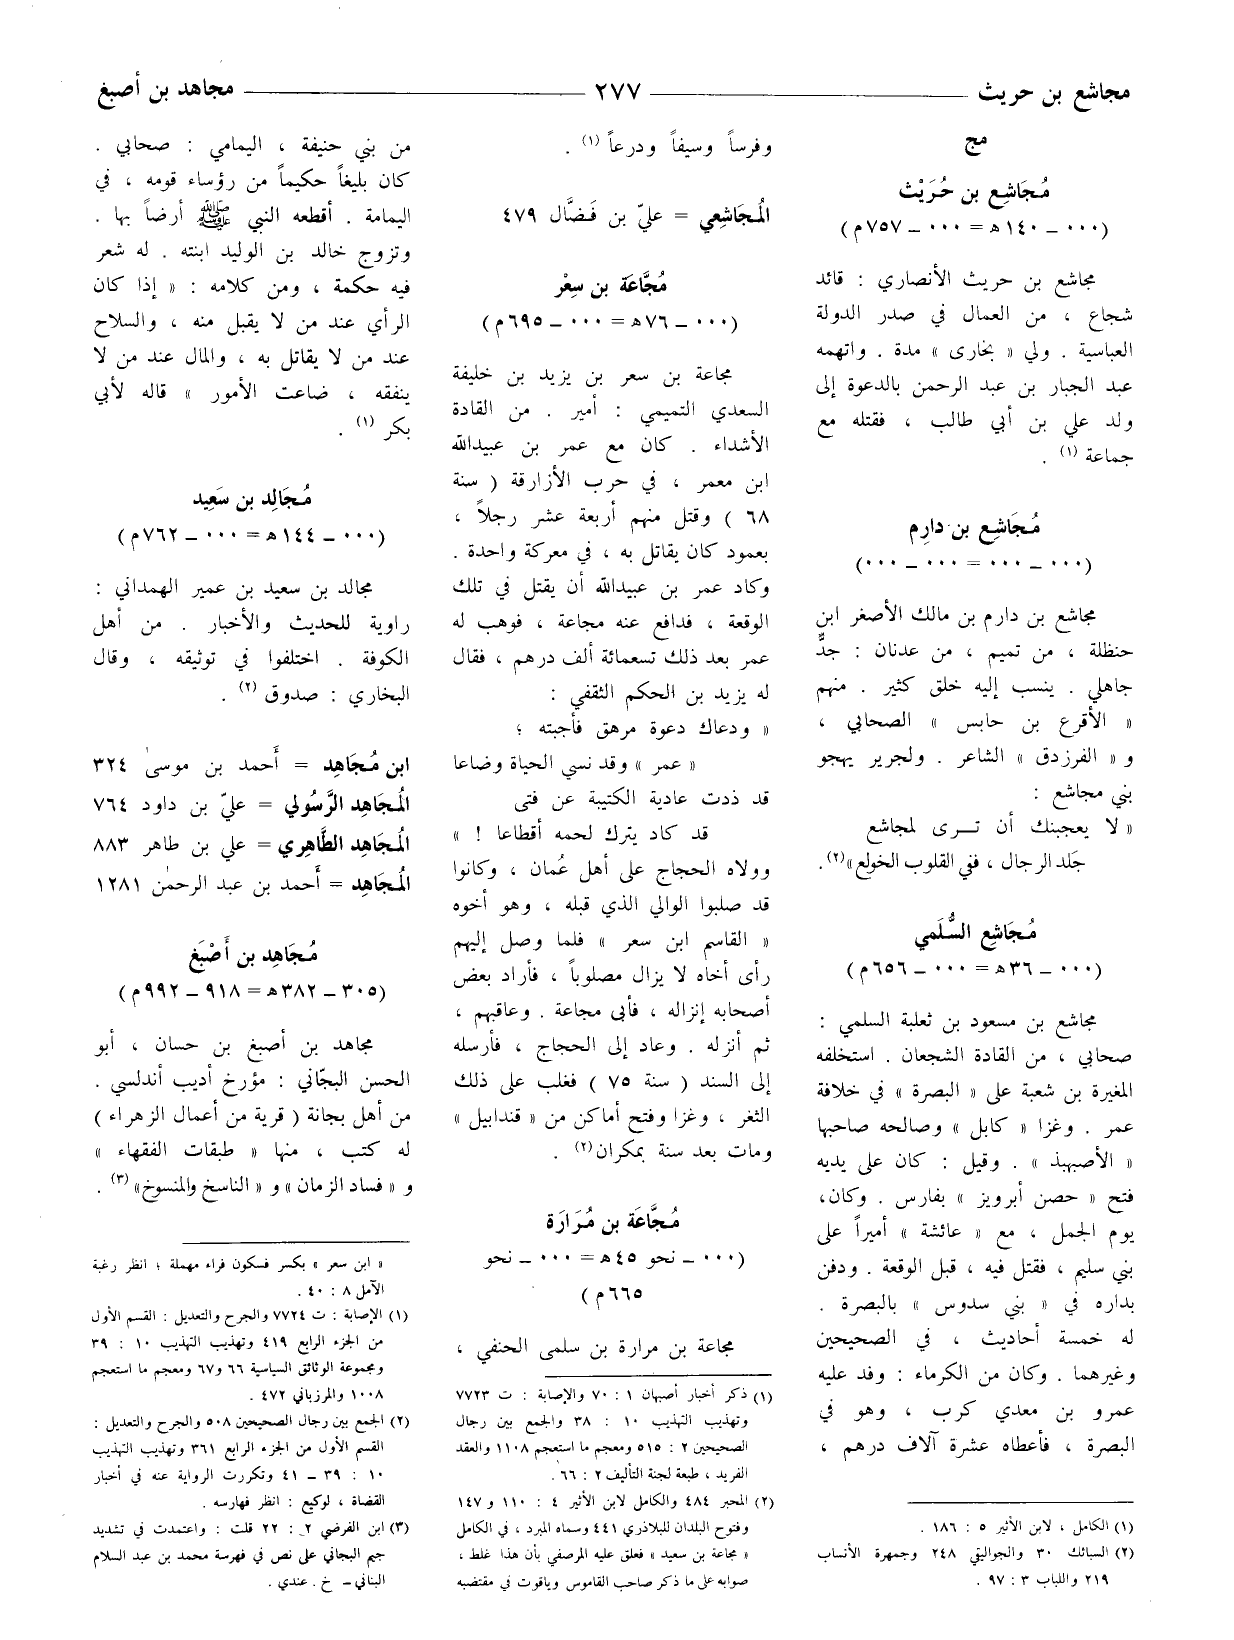 مجاشع بن حريث ٢٧٧ مجاهد بن أصبغ
مج
مُجَاشِع بن حُرَيْث
(٠٠٠ ــ ١٤٠ هـ = ٠٠٠ ــ ٧٥٧ م)
مجاشع بن حريث الأنصاري : قائد
شجاع ، من العمال في صدر الدولة
العباسية . ولي « بخارى » مدة . واتهمه
عبد الجبار بن عبد الرحمن بالدعوة إلى
ولد علي بن أبي طالب ، فقتله مع
جماعة (١) .
مُجَاشِع بن دارِم
(٠٠٠ ــ ٠٠٠ = ٠٠٠ ــ ٠٠٠)
مجاشع بن دارم بن مالك الأصغر ابن
حنظلة ، من تميم ، من عدنان : جدٌّ
جاهلي . ينسب إليه خلق كثير . منهم
« الأقرع بن حابس » الصحابي ،
و « الفرزدق » الشاعر . ولجرير يهجو
بني مجاشع :
« لا يعجبنك أن تـــرى لمجاشع
جَلد الرجال ، ففي القلوب الخولع »(٢).
مُجَاشِع السُّلَمي
(٠٠٠ ــ ٣٦ هـ = ٠٠٠ ــ ٦٥٦ م)
مجاشع بن مسعود بن ثعلبة السلمي :
صحابي ، من القادة الشجعان . استخلفه
المغيرة بن شعبة على « البصرة » في خلافة
عمر . وغزا « كابل » وصالحه صاحبها
« الأصبهبذ » . وقيل : كان على يديه
فتح « حصن أبرويز » بفارس . وكان،
يوم الجمل ، مع « عائشة » أميراً على
بني سليم ، فقتل فيه ، قبل الوقعة . ودفن
بداره في « بني سدوس » بالبصرة .
له خمسة أحاديث ، في الصحيحين
وغيرهما . وكان من الكرماء : وفد عليه
عمرو بن معدي كرب ، وهو في
البصرة ، فأعطاه عشرة آلاف درهم ،
(١) الكامل ، لابن الأثير ٥ : ١٨٦ .
(٢) السبائك ٣٠ والجواليقي ٢٤٨ وجمهرة الأنساب
٢١٩ واللباب ٣ : ٩٧ .
وفرساً وسيفاً ودرعاً (١) .
المُجَاشِعي = عليّ بن فَضَّال ٤٧٩
مُجَّاعَة بن سِعْر
(٠٠٠ ــ ٧٦ هـ = ٠٠٠ ــ ٦٩٥ م)
مجاعة بن سعر بن يزيد بن خليفة
السعدي التميمي : أمير . من القادة
الأشداء . كان مع عمر بن عبيدالله
ابن معمر ، في حرب الأزارقة ( سنة
٦٨ ) وقتل منهم أربعة عشر رجلاً ،
بعمود كان يقاتل به ، في معركة واحدة .
وكاد عمر بن عبيدالله أن يقتل في تلك
الوقعة ، فدافع عنه مجاعة ، فوهب له
عمر بعد ذلك تسعمائة ألف درهم ، فقال
له يزيد بن الحكم الثقفي :
« ودعاك دعوة مرهق فأجبته ؛
« عمر » وقد نسي الحياة وضاعا
قد ذدت عادية الكتيبة عن فتى
قد كاد يترك لحمه أقطاعا ! »
وولاه الحجاج على أهل عُمان ، وكانوا
قد صلبوا الوالي الذي قبله ، وهو أخوه
« القاسم ابن سعر » فلما وصل إليهم
رأى أخاه لا يزال مصلوباً ، فأراد بعض
أصحابه إنزاله ، فأبى مجاعة . وعاقبهم ،
ثم أنزله . وعاد إلى الحجاج ، فأرسله
إلى السند ( سنة ٧٥ ) فغلب على ذلك
الثغر ، وغزا وفتح أماكن من « قندابيل »
ومات بعد سنة بمكران(٢) .
مُجَّاعَة بن مُرَارَة
(٠٠٠ ــ نحو ٤٥ هـ = ٠٠٠ ــ نحو
٦٦٥ م)
مجاعة بن مرارة بن سلمى الحنفي ،
(١) ذكر أخبار أصبهان ١ : ٧٠ والإصابة : ت ٧٧٢٣
وتهذيب التهذيب ١٠ : ٣٨ والجمع بين رجال
الصحيحين ٢ : ٥١٥ ومعجم ما استعجم ١١٠٨ والعقد
الفريد ، طبعة لجنة التأليف ٢ : ٦٦ .
(٢) المحبر ٤٨٤ والكامل لابن الأثير ٤ : ١١٠ و ١٤٧
وفتوح البلدان للبلاذري ٤٤١ وسماه المبرد ، في الكامل
« مجاعة بن سعيد » فعلق عليه المرصفي بأن هذا غلط ،
صوابه على ما ذكر صاحب القاموس وياقوت في مقتضبه
من بني حنيفة ، اليمامي : صحابي .
كان بليغاً حكيماً من رؤساء قومه ، في
اليمامة . أقطعه النبي ﷺ أرضاً بها .
وتزوج خالد بن الوليد ابنته . له شعر
فيه حكمة ، ومن كلامه : « إذا كان
الرأي عند من لا يقبل منه ، والسلاح
عند من لا يقاتل به ، والمال عند من لا
ينفقه ، ضاعت الأمور » قاله لأبي
بكر (١) .
مُجَالِد بن سَعِيد
(٠٠٠ ــ ١٤٤ هـ = ٠٠٠ ــ ٧٦٢ م)
مجالد بن سعيد بن عمير الهمداني :
راوية للحديث والأخبار . من أهل
الكوفة . اختلفوا في توثيقه ، وقال
البخاري : صدوق (٢) .
ابن مُجَاهِد = أَحمد بن موسىٰ ٣٢٤
المُجَاهِد الرَّسُولي = عليّ بن داود ٧٦٤
المُجَاهِد الطَّاهِري = علي بن طاهر ٨٨٣
المُجَاهِد = أَحمد بن عبد الرحمٰن ١٢٨١
مُجَاهِد بن أَصْبَغ
(٣٠٥ ــ ٣٨٢ هـ = ٩١٨ ــ ٩٩٢ م)
مجاهد بن أصبغ بن حسان ، أبو
الحسن البجّاني : مؤرخ أديب أندلسي .
من أهل بجانة ( قرية من أعمال الزهراء )
له كتب ، منها « طبقات الفقهاء »
و « فساد الزمان » و « الناسخ والمنسوخ» (٣) .
« ابن سعر » بكسر فسكون فراء مهملة ؛ انظر رغبة
الآمل ٨ : ٤٠ .
(١) الإصابة : ت ٧٧٢٤ والجرح والتعديل : القسم الأول
من الجزء الرابع ٤١٩ وتهذيب التهذيب ١٠ : ٣٩
ومجموعة الوثائق السياسية ٦٦ و ٦٧ ومعجم ما استعجم
١٠٠٨ والمرزباني ٤٧٢ .
(٢) الجمع بين رجال الصحيحين ٥٠٨ والجرح والتعديل :
القسم الأول من الجزء الرابع ٣٦١ وتهذيب التهذيب
١٠ : ٣٩ ــ ٤١ وتكررت الرواية عنه في أخبار
القضاة ، لوكيع : انظر فهارسه .
(٣) ابن الفرضي ٢ : ٢٢ قلت : واعتمدت في تشديد
جيم البجاني على نص في فهرسة محمد بن عبد السلام
البناني ــ خ . عندي .